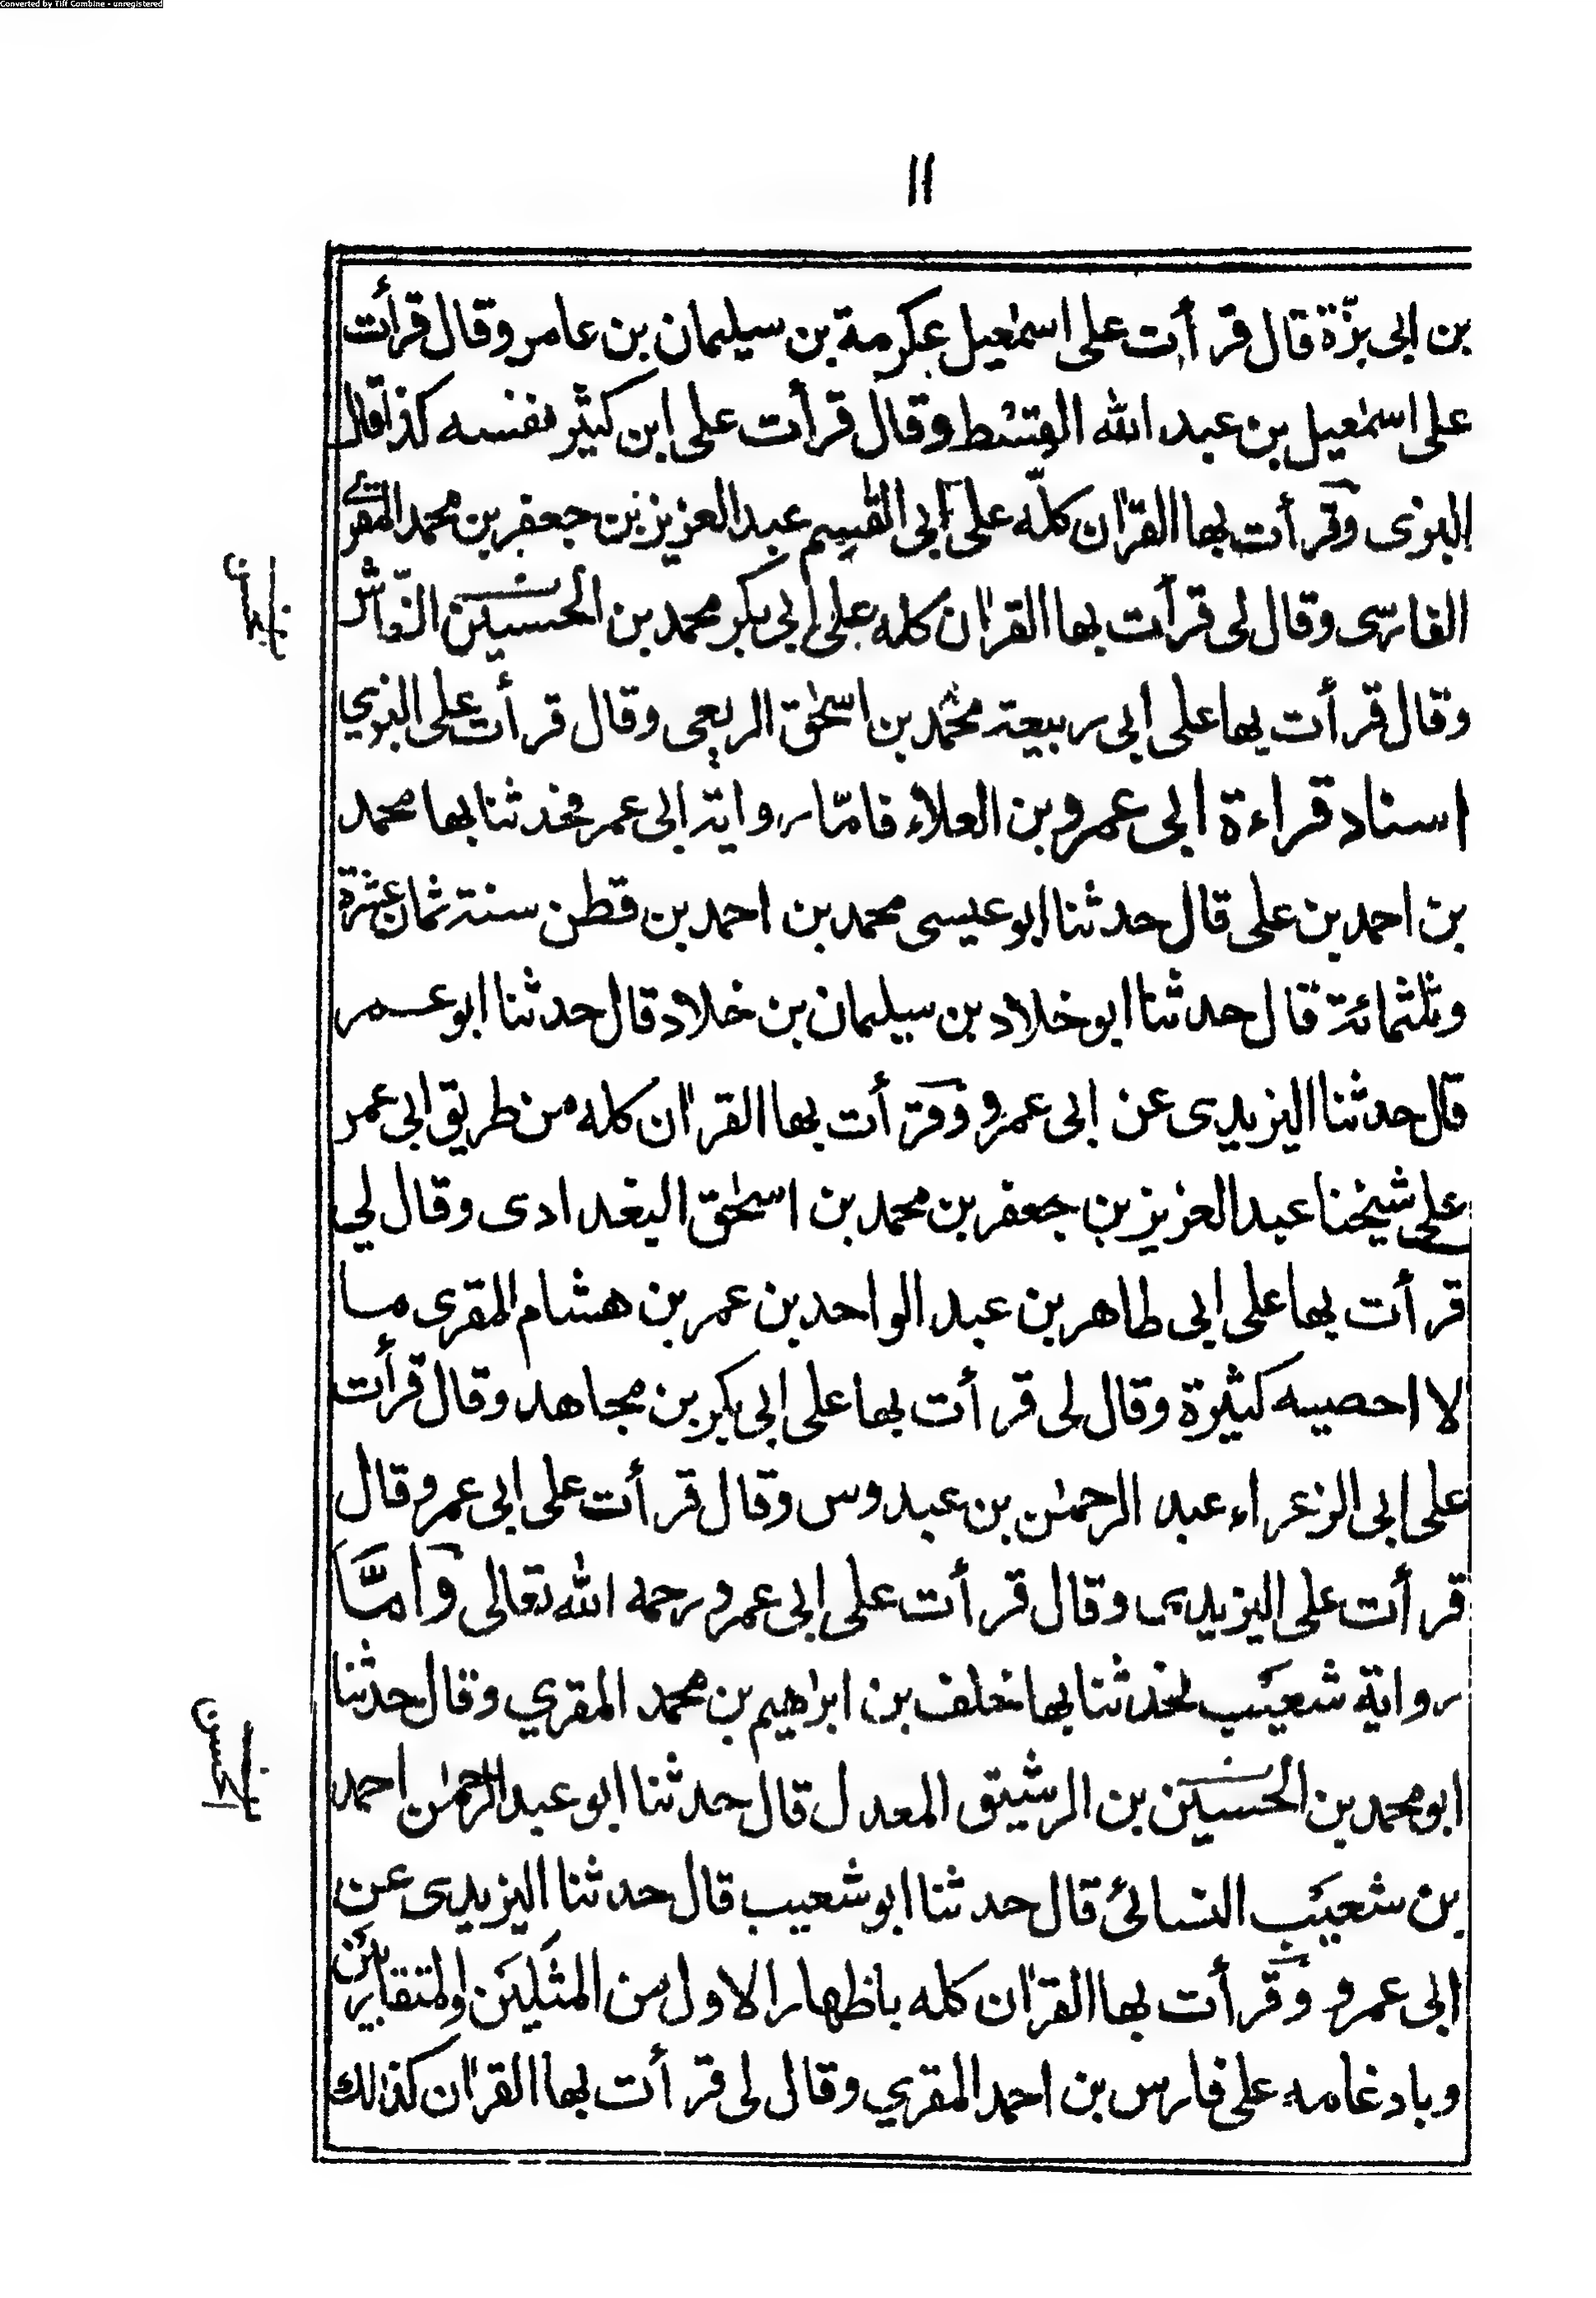 Converted by Tiff Combine - unregistered
١١
بن ابى بزّة قال قرأت على اسمٰعيل عكرمة بن سيليمان بن عامر وقال قرأت
على اسمٰعيل بن عبد الله القسط وقال قرأت على ابن كثير نفسه كذا قال
البزى وقرأت بها القرٰان كلّه على ابى القٰسم عبد العزيز بن جعفر بن محمد المقرئ
الفارسى وقال لى قرأت بها القرٰان كله على ابى بكر محمد بن الحسين النقاش
وقال قرأت بها على ابى ربيعة محمد بن اسحٰق الربعى وقال قرأت على البزي
اسناد قراءة ابى عمرو بن العلاء فامّا رواية ابى عمر فحدثنا بها محمد
بن احمد بن على قال حدثنا ابو عيسى محمد بن احمد بن قطن سنة ثمان عشرة
وثلثمائة قال حدثنا ابو خلاد بن سيليمان بن خلاد قال حدثنا ابو عمر
قال حدثنا اليزيدى عن ابى عمرو وقرأت بها القرٰان كله من طريق ابى عمر
على شيخنا عبد العزيز بن جعفر بن محمد بن اسحٰق البغدادى وقال لي
قرأت بها على ابى طاهر بن عبد الواحد بن عمر بن هشام المقرى ما
لا احصيه كثيرة وقال لى قرأت بها على ابى بكر بن مجاهد وقال قرأت
على ابى الزعراء عبد الرحمٰن بن عبدوس وقال قرأت على ابى عمر وقال
قرأت على اليزيدى وقال قرأت على ابى عمرو رحمه الله تعالى وَامَّا
رواية شعيَب فحدثنا بها خلف بن ابرٰهيم بن محمد المقري وقال حدثنا
ابو محمد بن الحسين بن الرشيق المعدل قال حدثنا ابو عبد الرحمٰن احمد
بن شعيَب النسائئ قال حدثنا ابو شعيب قال حدثنا اليزيدى عن
ابى عمرو وقرأت بها القرٰان كله باظهار الاول من المثلَين والمتقاربَين
وبادغامه على فارس بن احمد المقري وقال لى قرأت بها القرٰان كذلك
الحسن